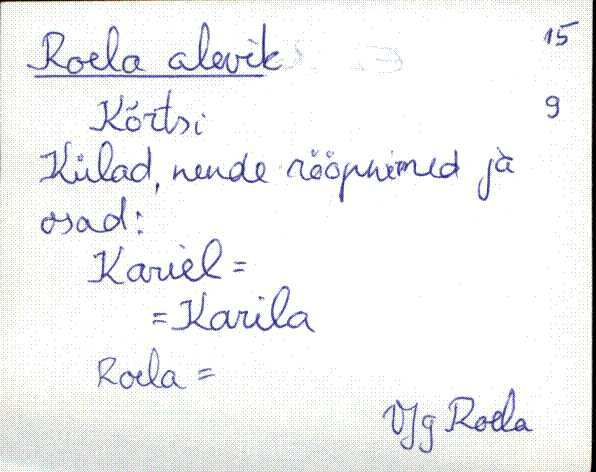 Roela alevik 15
Kórtsi 9
Külad, nende rööpnimed ja
osad:
Kariel =
= Karila
Roela =
VJg Roela